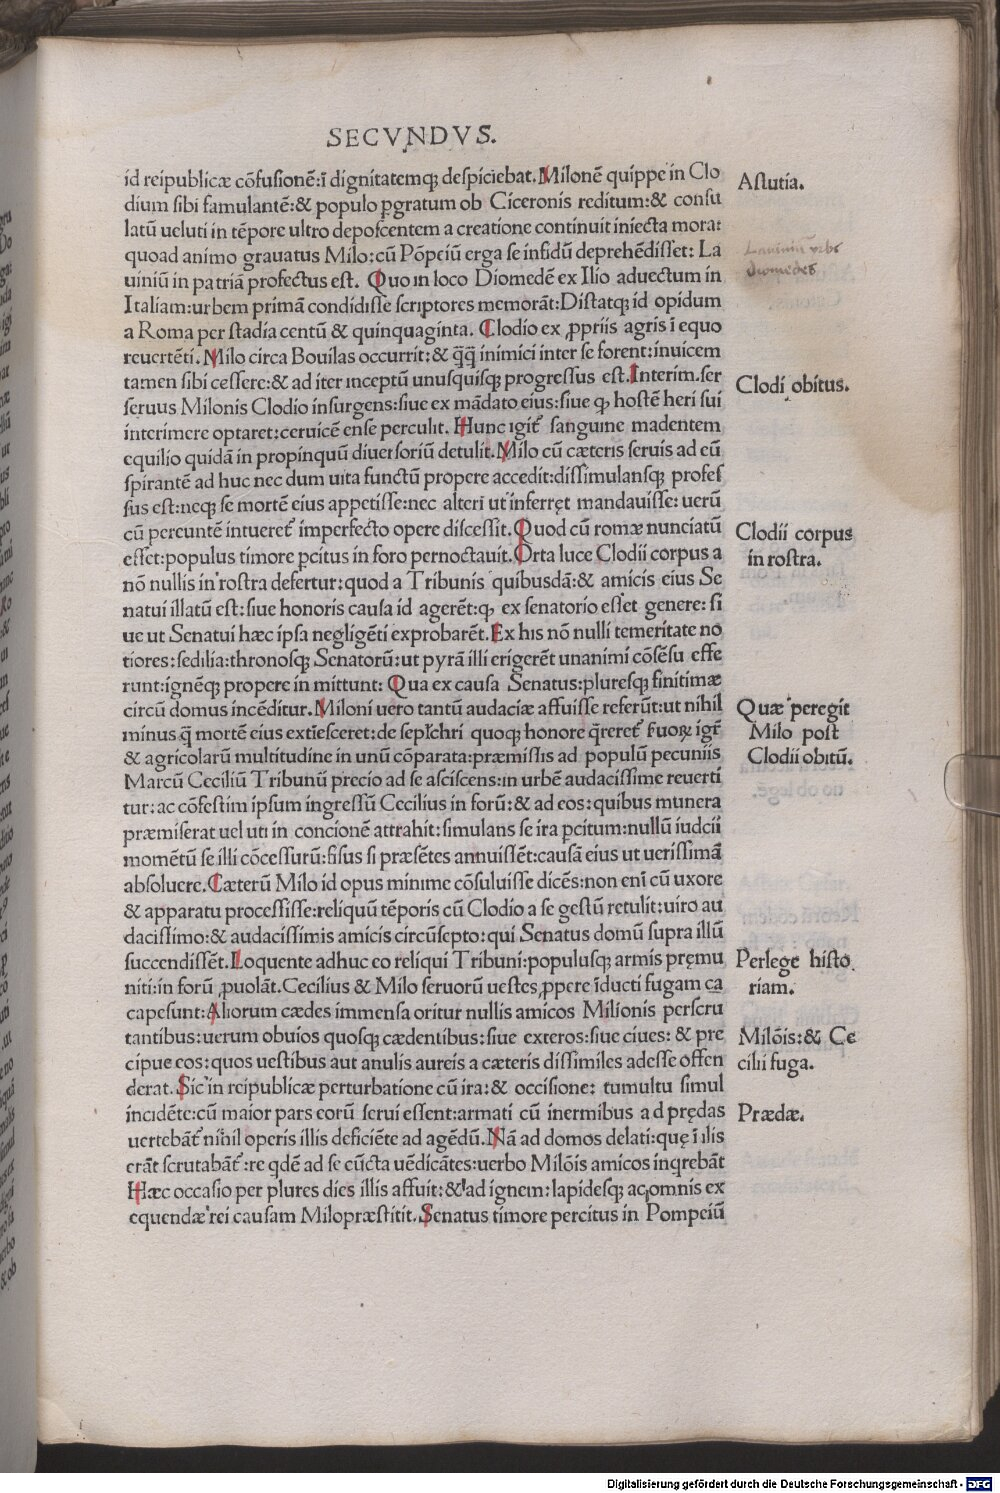 SECVNDVS.
id reipublicæ cōfusionē:ī dignitatemqȝ despiciebat. Milonē quippe in Clo
dium sibi famulantē:& populo ꝑgratum ob Ciceronis reditum:& consu
latū ueluti in tēpore ultro deposcentem a creatione continuit iniecta mora:
quoad animo grauatus Milo:cū Pōpeiū erga se infidū deprehēdisset: La
uiniū in patriā profectus est. Quo in loco Diomedē ex Ilio aduectum in
Italiam:urbem primā condidisse scriptores memorāt:Distatqȝ id opidum
a Roma per stadia centū & quinquaginta. Clodio ex ꝓpriis agris ī equo
reuertēti. Milo circa Bouilas occurrit:& q̄q̄ inimici inter se forent:inuicem
tamen sibi cessere:& ad iter inceptū unusquisqȝ progressus est. Interim.ser
seruus Milonis Clodio insurgens:siue ex mādato eius:siue ꝙ hostē heri sui
interimere optaret:ceruicē ense perculit. Hunc igit̄ sanguine madentem
equilio quidā in propinquū diuersoriū detulit. Milo cū cæteris seruis ad eū
spirantē ad huc nec dum uita functū propere accedit:dissimulansqȝ profes
sus est:neqȝ se mortē eius appetisse:nec alteri ut inferret mandauisse: uerū
cū pereuntē intueret̄ imperfecto opere discessit. Quod cū romæ nunciatū
esset:populus timore ꝑcitus in foro pernoctauit. Orta luce Clodii corpus a
nō nullis in rostra defertur:quod a Tribunis quibusdā:& amicis eius Se
natui illatū est:siue honoris causa id agerēt:ꝙ ex senatorio esset genere: si
ue ut Senatui hæc ipsa negligēti exprobarēt. Ex his nō nulli temeritate no
tiores:sedilia:thronosqȝ Senatorū:ut pyrā illi erigerēt unanimi cōsēsu effe
runt:ignēqȝ propere in mittunt: Qua ex causa Senatus:pluresqȝ finitimæ
circū domus incēditur. Miloni uero tantū audaciæ affuisse referūt:ut nihil
minus q̄ mortē eius extiesceret:de seplchri quoqȝ honore q̄reret̄ Fuoꝝ igr̄
& agricolarū multitudine in unū cōparata:præmissis ad populū pecuniis
Marcū Ceciliū Tribunū precio ad se asciscens:in urbē audacissime reuerti
tur:ac cōfestim ipsum ingressū Cecilius in forū:& ad eos:quibus munera
præmiserat uel uti in concionē attrahit:simulans se ira ꝑcitum:nullū iudcii
momētū se illi cōcessurū:fisus si præsētes annuissēt:causā eius ut uerissimā
absoluere. Cæterū Milo id opus minime cōsuluisse dicēs:non eni cū uxore
& apparatu processisse:reliquū tēporis cū Clodio a se gestū retulit:uiro au
dacissimo:& audacissimis amicis circūsepto:qui Senatus domū supra illū
succendissēt. Loquente adhuc eo reliqui Tribuni:populusqȝ armis pręmu
niti:in forū ꝓuolāt. Cecilius & Milo seruorū uestes ꝓpere īducti fugam ca
capesunt: Aliorum cædes immensa oritur nullis amicos Milionis perscru
tantibus:uerum obuios quosqȝ cædentibus:siue exteros:siue ciues: & pre
cipue eos:quos uestibus aut anulis aureis a cæteris dissimiles adesse offen
derat. Sic in reipublicæ perturbatione cū ira:& occisione: tumultu simul
incidēte:cū maior pars eorū serui essent:armati cū inermibus ad prędas
uertebāt̄ nihil operis illis deficiēte ad agēdū. Nā ad domos delati:quę ī illis
erāt scrutabāt̄:re qdē ad se cūcta uēdicātes:uerbo Milōis amicos inqrebāt
Hæc occasio per plures dies illis affuit:& ad ignem:lapidesqȝ ac omnis ex
equendæ rei causam Milo præstitit. Senatus timore percitus in Pompeiū
Astutia.
Lauiniū urbs
Diomedes
Clodi obitus.
Clodii corpus
in rostra.
Quæ peregit
Milo post
Clodii obitū.
Perlege histo
riam.
Milōis:& Ce
cilii fuga.
Prædæ.
Digitalisierung gefördert durch die Deutsche Forschungsgemeinschaft - DFG